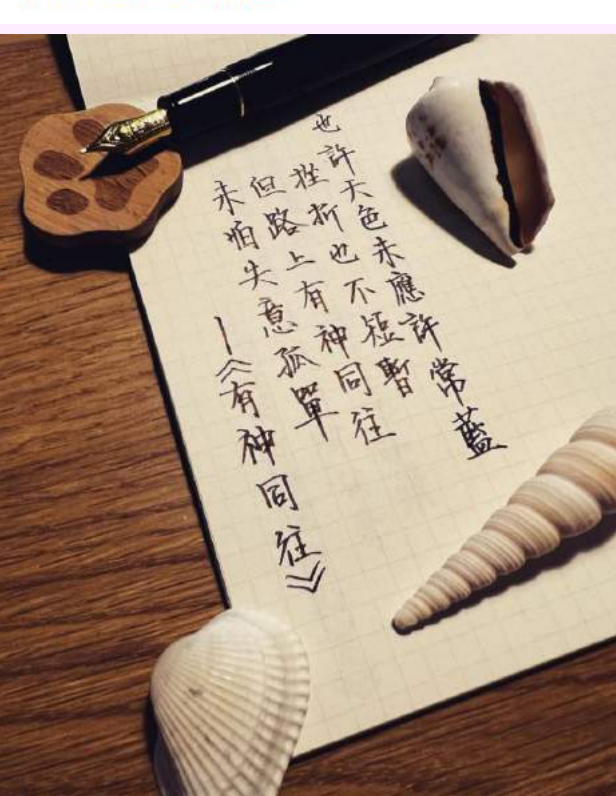 也許天色未應許常藍
挫折也不短暫
但路上有神同往
未怕失意孤單
—《有神同往》